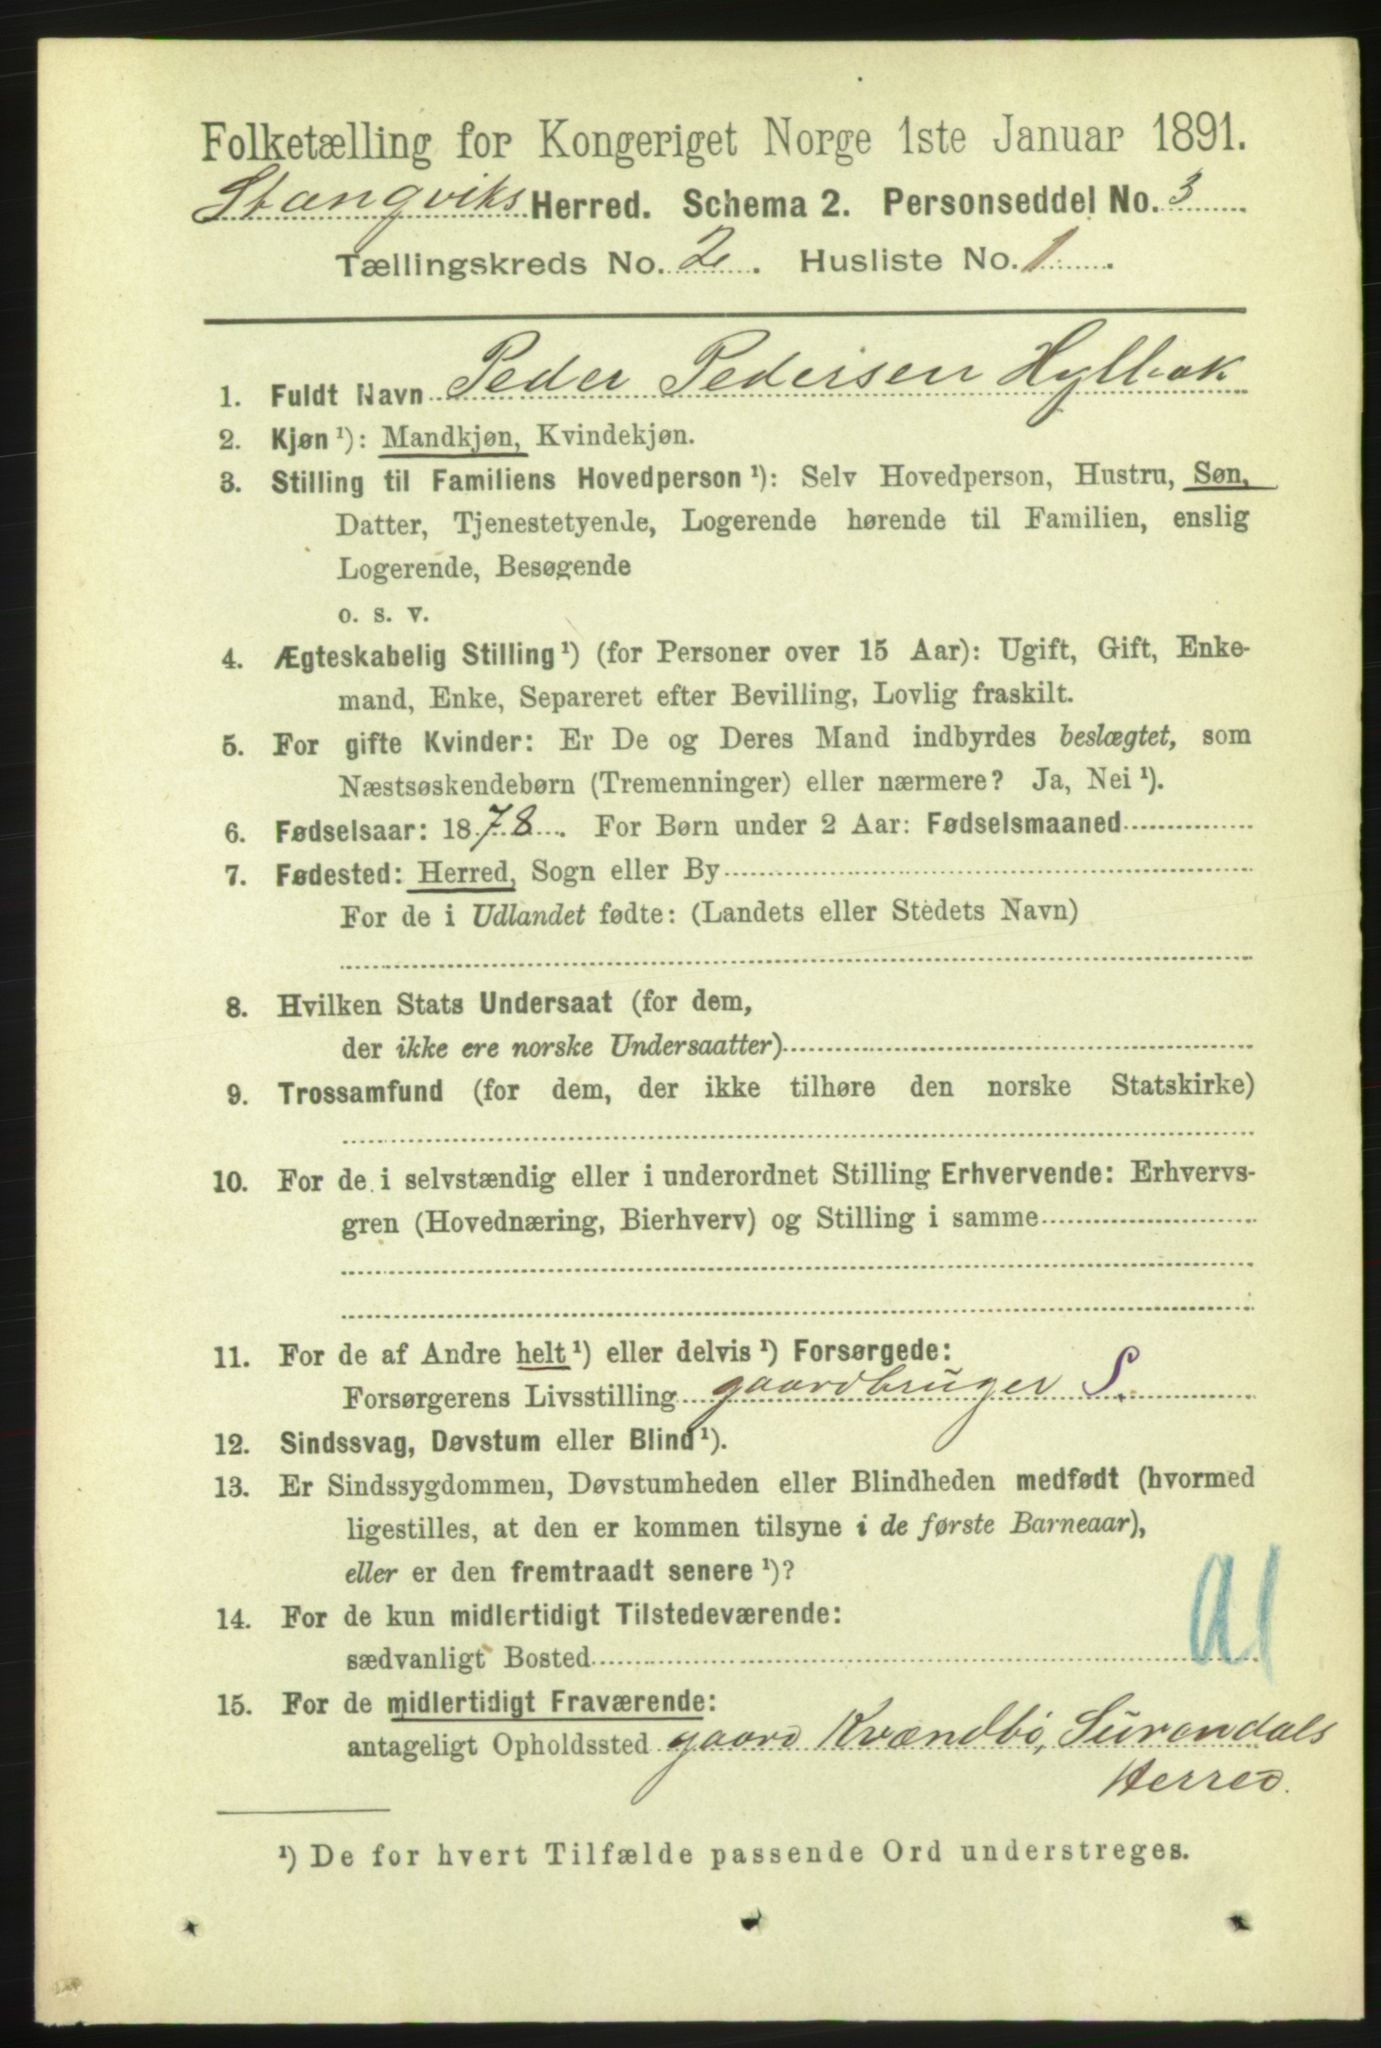 Folketælling for Kongeriget Norge 1ste Januar 1891.
Stangviks Herred. Schema 2. Personseddel No. 3
Tællingskreds No. 2. Husliste No. 1.
1. Fuldt Navn Peder Pedersen Hylbak
2. Kjøn ¹): Mandkjøn, Kvindekjøn.
3. Stilling til Familiens Hovedperson ¹): Selv Hovedperson, Hustru, Søn,
Datter, Tjenestetyende, Logerende hørende til Familien, enslig
Logerende, Besøgende
o. s. v.
4. Ægteskabelig Stilling ¹) (for Personer over 15 Aar): Ugift, Gift, Enke-
mand, Enke, Separeret efter Bevilling, Lovlig fraskilt.
5. For gifte Kvinder: Er De og Deres Mand indbyrdes beslægtet, som
Næstsøskendebørn (Tremenninger) eller nærmere? Ja, Nei ¹).
6. Fødselsaar: 1878. For Børn under 2 Aar: Fødselsmaaned
7. Fødested: Herred, Sogn eller By
For de i Udlandet fødte: (Landets eller Stedets Navn)
8. Hvilken Stats Undersaat (for dem,
der ikke ere norske Undersaatter)
9. Trossamfund (for dem, der ikke tilhøre den norske Statskirke)
10. For de i selvstændig eller i underordnet Stilling Erhvervende: Erhvervs-
gren (Hovednæring, Bierhverv) og Stilling i samme
11. For de af Andre helt ¹) eller delvis ¹) Forsørgede:
Forsørgerens Livsstilling gaardbruger S.
12. Sindssvag, Døvstum eller Blind ¹).
13. Er Sindssygdommen, Døvstumheden eller Blindheden medfødt (hvormed
ligestilles, at den er kommen tilsyne i de første Barneaar),
eller er den fremtraadt senere ¹)?
14. For de kun midlertidigt Tilstedeværende:
sædvanligt Bosted
a1
15. For de midlertidigt Fraværende:
antageligt Opholdssted gaard Kvændbø, Surendals
Herred.
¹) De for hvert Tilfælde passende Ord understreges.